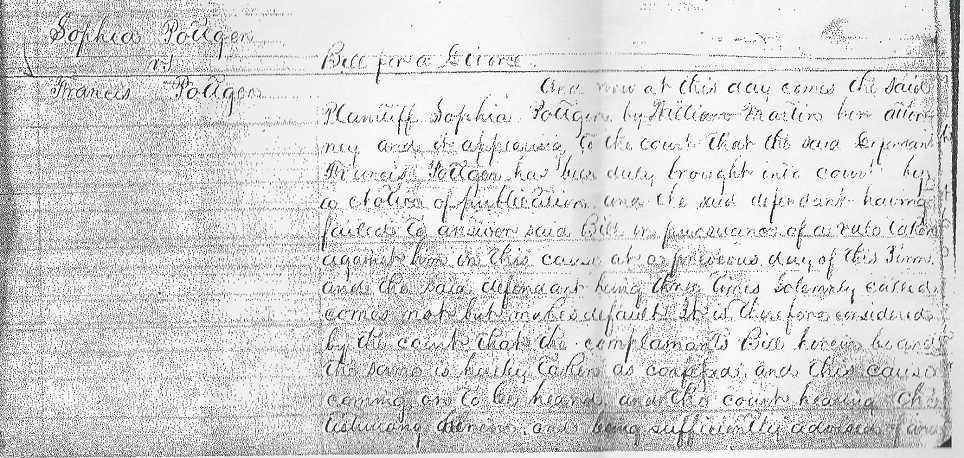 Sophia Pottgen
vs
Bill for a Divorce
Francis Pottgen
And now at this day comes the said
Plaintiff Sophia Pottgen by William Martin her attor-
ney and it appearing to the court that the said Defendant
Francis Pottgen has been duly brought into court by
a Notice of publication and the said defendant having
failed to answer said Bill in pursuance of a rule taken
against him in this cause at a previous day of this Term
and the said defendant being three times Solemnly called
comes not but makes default It is therefore considered
by the court that the complainants Bill herein be and
the same is hereby taken as confessed and this cause
coming on to be heard and the court hearing the
testimony herein and being sufficiently advised and